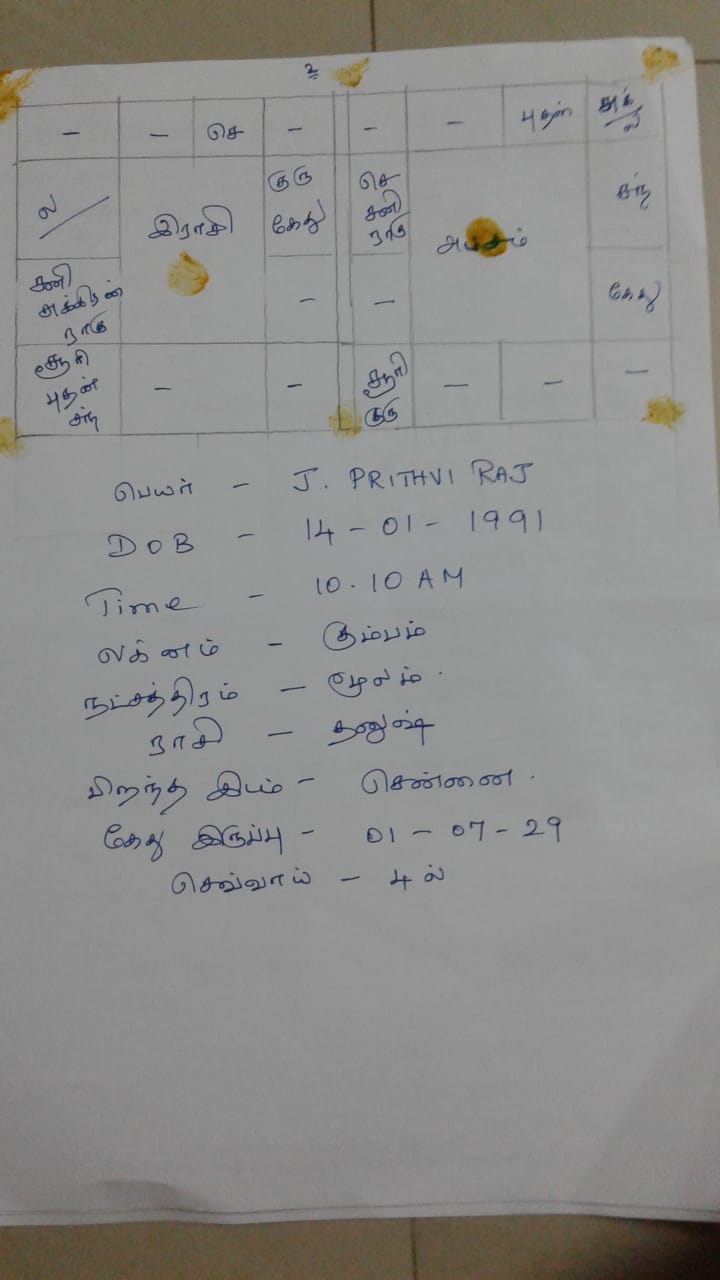 உ
- - செ - - - புதன் சுக் ல
ல இராசி குரு கேது செ சனி ராகு அம்சம் சந்
சனி சுக்கிரன் ராகு - - கேது
சூரி புதன் சந் - - சூரி குரு - - -
பெயர் - J. PRITHVI RAJ
DOB - 14-01-1991
Time - 10.10 AM
லக்னம் - கும்பம்
நட்சத்திரம் - மூலம்.
ராசி - தனுஷ்
பிறந்த இடம் - சென்னை.
கேது இருப்பு - 01-07-29
செவ்வாய் - 4ல்